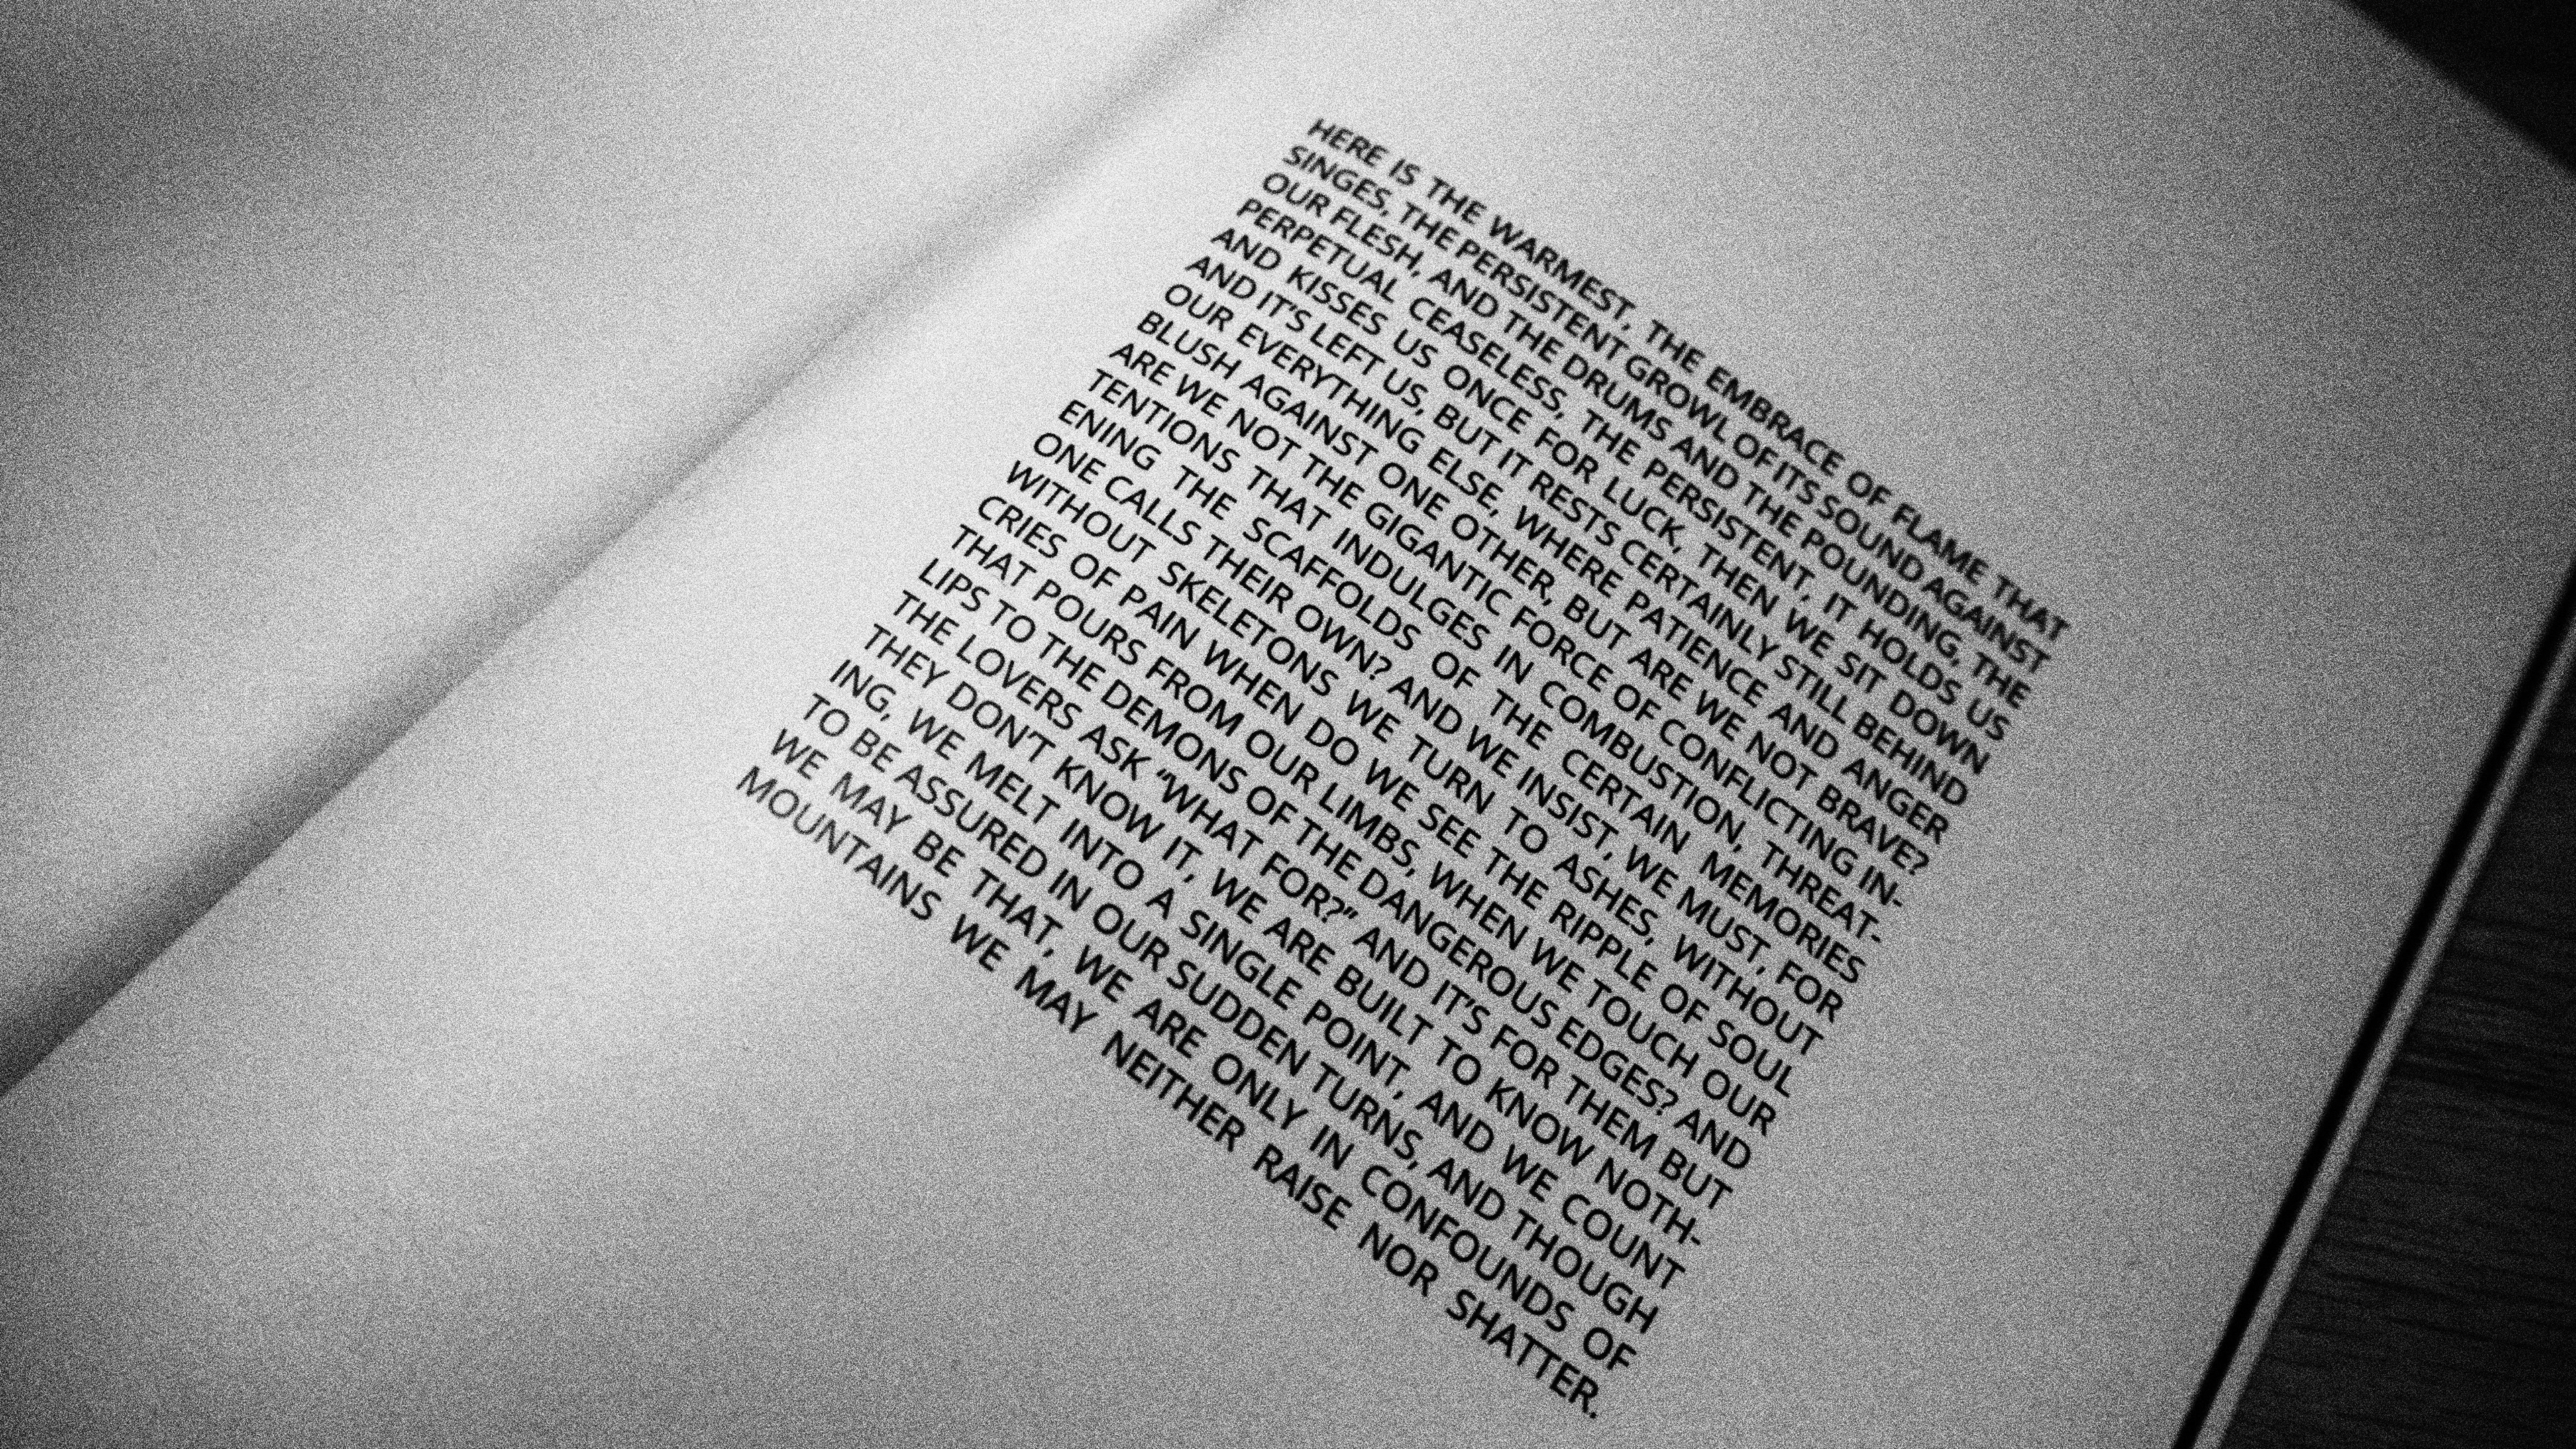 HERE IS THE WARMEST, THE EMBRACE OF FLAME THAT
SINGES, THE PERSISTENT GROWL OF ITS SOUND AGAINST
OUR FLESH, AND THE DRUMS AND THE POUNDING, THE
PERPETUAL CEASELESS, THE PERSISTENT, IT HOLDS US
AND KISSES US ONCE FOR LUCK, THEN WE SIT DOWN
AND IT'S LEFT US, BUT IT RESTS CERTAINLY STILL BEHIND
OUR EVERYTHING ELSE, WHERE PATIENCE AND ANGER
BLUSH AGAINST ONE OTHER, BUT ARE WE NOT BRAVE?
ARE WE NOT THE GIGANTIC FORCE OF CONFLICTING IN-
TENTIONS THAT INDULGES IN COMBUSTION, THREAT-
ENING THE SCAFFOLDS OF THE CERTAIN MEMORIES
ONE CALLS THEIR OWN? AND WE INSIST, WE MUST, FOR
WITHOUT SKELETONS WE TURN TO ASHES, WITHOUT
CRIES OF PAIN WHEN DO WE SEE THE RIPPLE OF SOUL
THAT POURS FROM OUR LIMBS, WHEN WE TOUCH OUR
LIPS TO THE DEMONS OF THE DANGEROUS EDGES? AND
THE LOVERS ASK “WHAT FOR?” AND IT'S FOR THEM BUT
THEY DON'T KNOW IT, WE ARE BUILT TO KNOW NOTH-
ING, WE MELT INTO A SINGLE POINT, AND WE COUNT
TO BE ASSURED IN OUR SUDDEN TURNS, AND THOUGH
WE MAY BE THAT, WE ARE ONLY IN CONFOUNDS OF
MOUNTAINS WE MAY NEITHER RAISE NOR SHATTER.